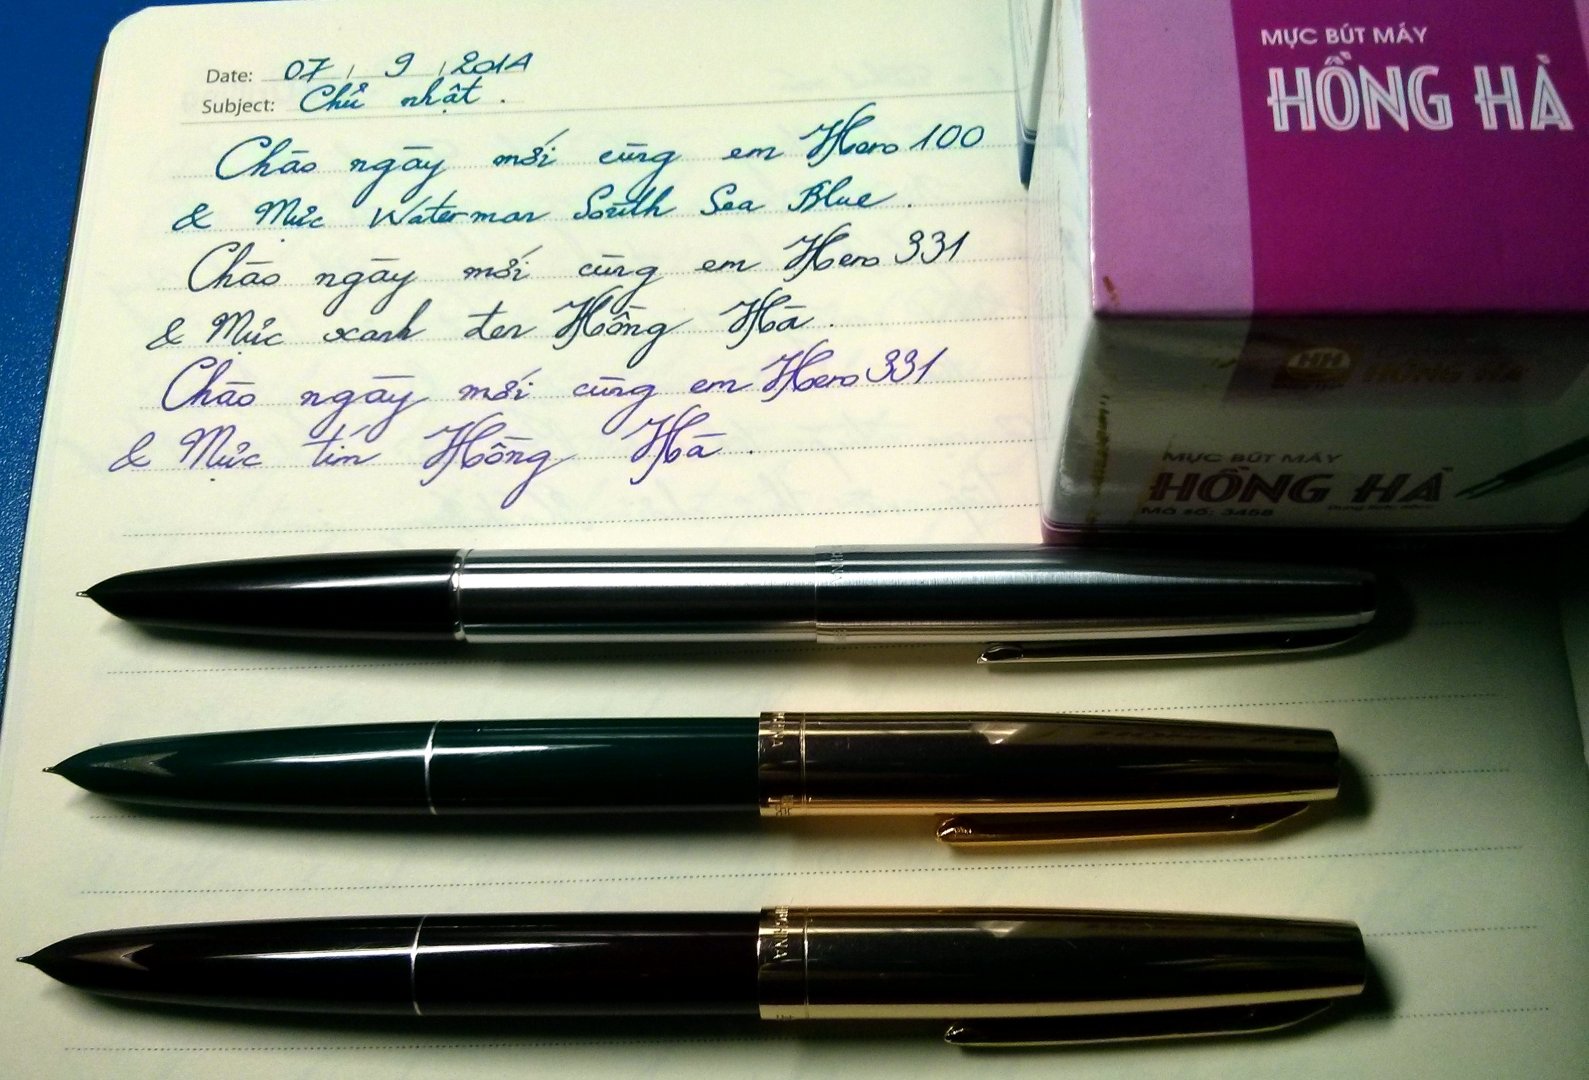 Date: 07 / 9 / 2014
Subject: Chủ nhật.
Chào ngày mới cùng em Hero 100
& Mực Waterman South Sea Blue.
Chào ngày mới cùng em Hero 331
& Mực xanh đen Hồng Hà.
Chào ngày mới cùng em Hero 331
& Mực tím Hồng Hà.
MỰC BÚT MÁY
HỒNG HÀ
HH
HỒNG HÀ
MỰC BÚT MÁY
HỒNG HÀ
Mã số: 3458